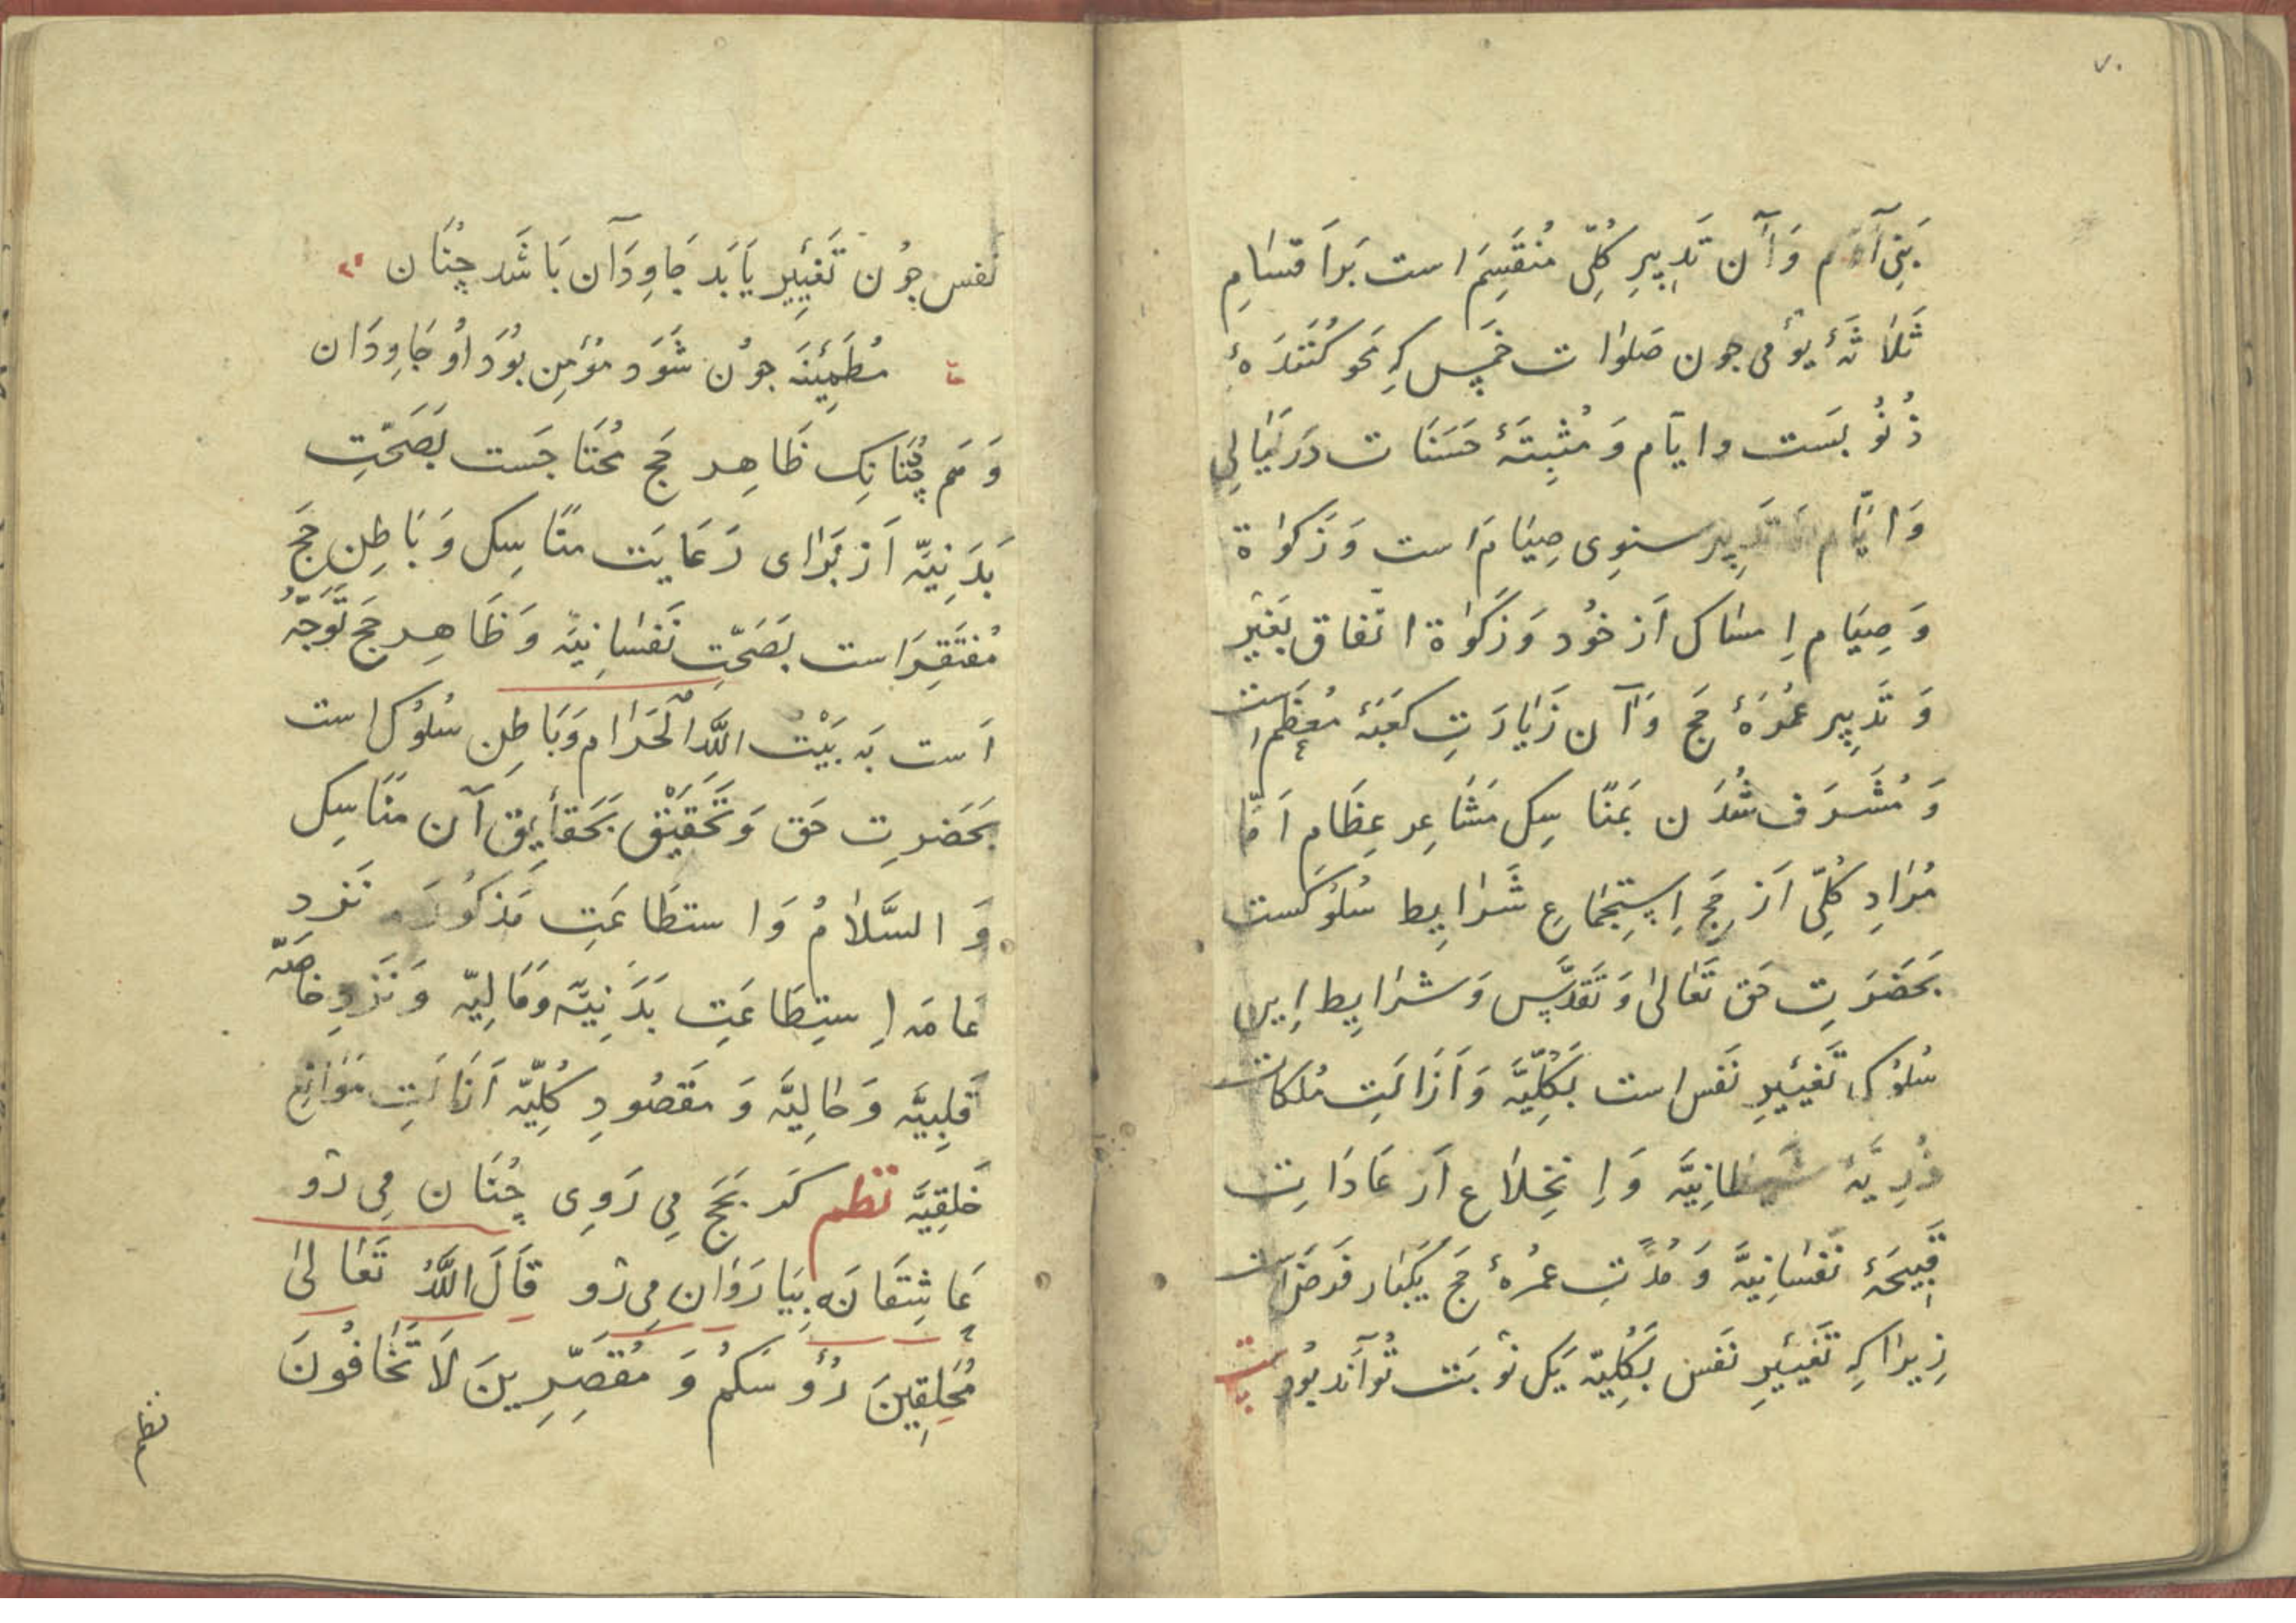 ۷۰
بَنِی آدَم وَ آن تَدبِیرِ کُلِّی مُنقَسِمَ است بَر اَقسَامِ
ثَلَاثَهٔ یومی جون صَلَوات خَمس کِه مَحو کُنَندَهٔ
ذُنُو بَست وایّام وَ مُثبِتَهٔ حَسَنَات دَر لَیَالِی
وَ ایَّام تَدبِیر سنوِی صِیَام است وَ زَکوٰة
وَ صِیَام اِمسَاک اَز خوُد وَ زَکوٰة اِنفاق بَغَیرِ
وَ تَدبِیر عُمُرَهٔ حَج وَ آن زَیَارَتِ کَعبَهٔ مُعَظَّم است
وَ مُشَرَف شُدَن بَمَنَاسِک مَشَاعِر عِظَام اَمَّا
مُرَادِ کُلِّی اَز حَج اِستِجمَاعِ شَرَایِط سُلُوکست
بَحَضَرتِ حَق تَعَالیٰ وَ تَقَدَّس وَ شَرَایِط اِین
سُلُوک تَغیِیرِ نَفس است بَکُلِّیَّه وَ اَزَالَتِ مُلکات
رُدِیَّهٔ شَیطَانِیَّه وَ اِنخِلَاع اَز عَادَاتِ
قَبِیحَهٔ نَفسَانِیَّه وَ مُدَّتِ عمُرهٔ حَج یَکبَار فَرضَ است
زِیرَا کِه تَغیِیرِ نَفس بَکُلِیّه یَک نَوبَت تُوَانَد بُود بیت
نفس جوُن تَغیِیِر یَابَد جَاوِدَان بَاشَد چِنَان
مُطمَئِنَه جوُن شَوَد مؤمِن بُوَد اوُ جَاوِدَان
وَ هَم چُنَانِک ظَاهِر حَج مُحتَاجَست بَصَحَّتِ
بَدَنِیَّه اَز بَرَای رَعَایَت مَنَاسِک وَ بَاطِنِ حَج
مُفتَقِرَ است بَصَحَّتِ نَفسَانِیَّه وَ ظَاهِر حَج تَوَجُّه
اَست بَه بَیْت اللّٰه الْحَرَام وَ بَاطِن سُلُوک است
بَحَضَرتِ حَق وَ تَحَقیْق بَحَقَایِق آن مَنَاسِک
وَ السَّلَامُ وَ استطَاعَتِ مَذکوُرَه نَزدِ
عَامَه اِستِطَاعَتِ بَدَنِیَّه وَ مَالِیّه وَ نَزدِ خاصّه
قَلبِیَّه وَ حَالِیَّه وَ مَقصُودِ کُلِّیَّه اَزَالَتِ مَوَانِع
خَلقِیَّه نظم کَر بَحَج مِی رَوِی چُنَان مِی رَو
عَاشِقَانَه بِیَا رَوَان مِی رَو قَالَ اللّٰهُ تَعَالیٰ
مُحَلِقِینَ رُؤُسَکُم وَ مُقَصِّرِینَ لَا تَخَافُونَ
نظم